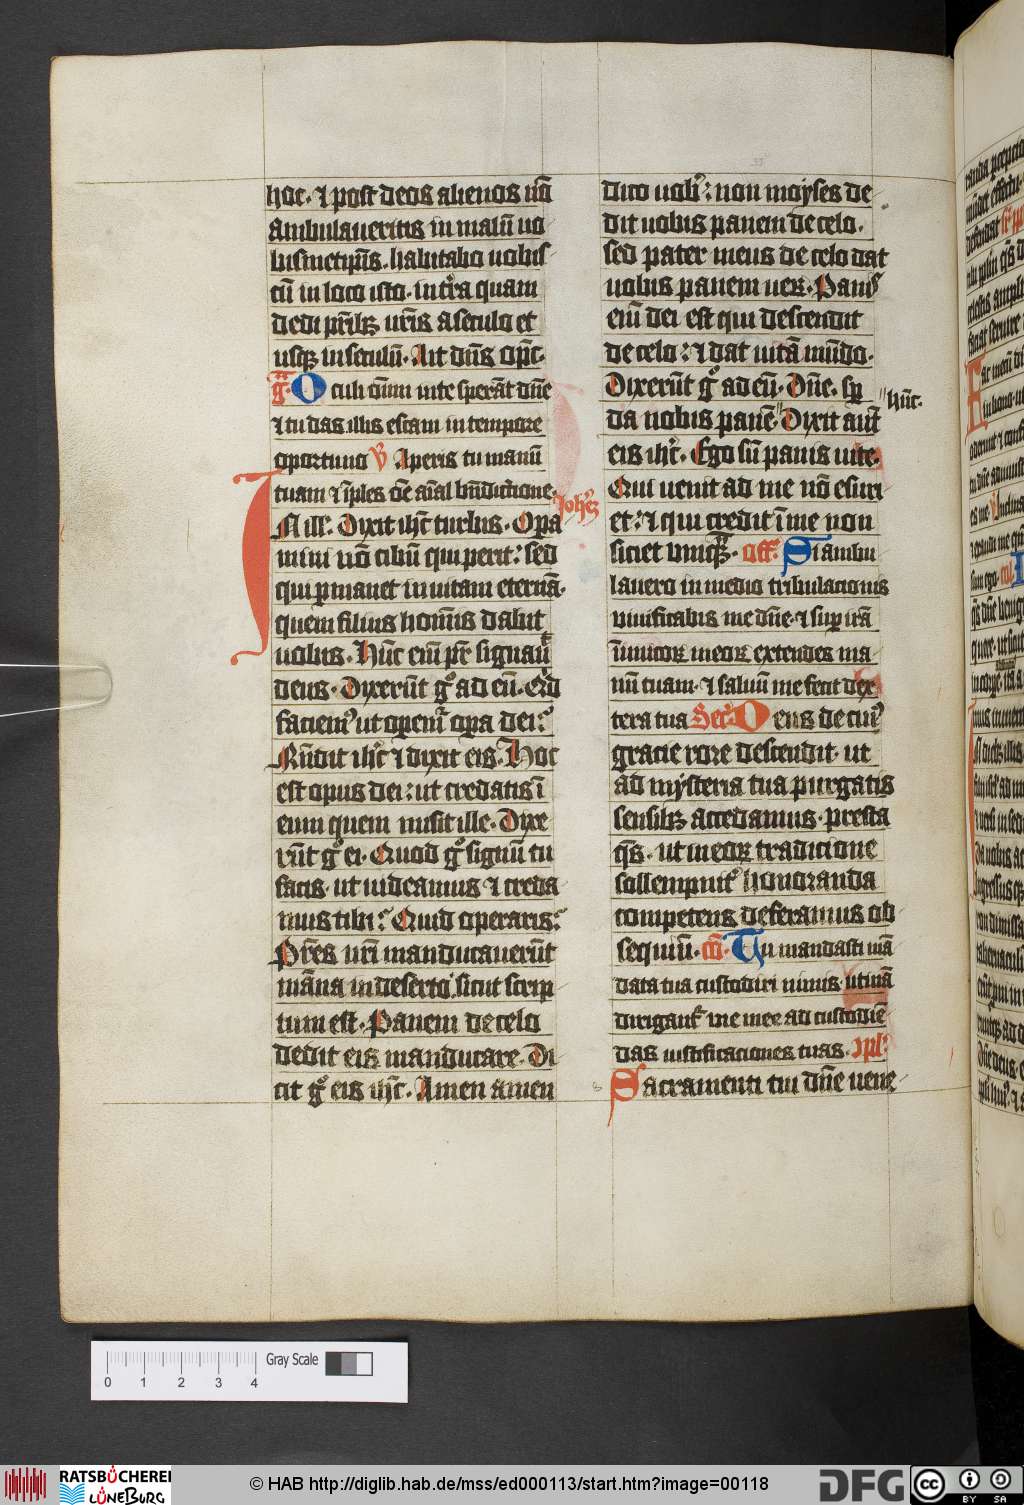 hoc · ⁊ post deos alienos nō
ambulaueritis in malū uo
bismetip̄s · habitabo uobis
cū in loco isto · in t̄ra quam
dedi pr̄ibꝫ ur̄is a seculo et
usqꝫ in seculū · Ait dn̄s op̄c ·
g̅ Oculi om̄ium in te sperāt dn̄e
⁊ tu das illis escam in tempore
oportuno V̄ Aperis tu manū
tuam ⁊ īples oē aīal bn̄dictione ·
Joh̄es
IN ill' · Dixit ih̄c turbis · Opa
mini nō cibū qui perit : sed
qui ꝑmanet in uitam eternā ·
quem filius hominis dabit
uobis · Hūc eīm pr̄ signauit
deus · Dixerūt gͦ ad eū · Qͥd
faciemꝰ ut opem̄ opa dei :
Rn̄dit ih̄c ⁊ dixit eis · Hoc
est opus dei : ut credatis ī
eum quem misit ille · Dixe
rūt gͦ ei · Quod gͦ signū tu
facis · ut uideamus ⁊ creda
mus tibi : Quid operaris :
Pr̄es nr̄i manducauerūt
māna in deserto · sicut scrip
tum est · Panem de celo
dedit eis manducare · Di
cit gͦ eis ih̄c · Amen amen
dico uobꝭ : non moyses de
dit uobis panem de celo ·
sed pater meus de celo dat
uobis panem uerꝫ · Panis
eīm dei est qui descendit
de celo : ⁊ dat uitā mūdo ·
Dixerūt gͦ ad eū · Dn̄e · sꝑ
da nobis panē " Dixit aut̄
"hūc ·
eis ih̄c · Ego sū panis uite ·
Qui uenit ad me nō esuri
et : ⁊ qui credit ī me non
siciet vmqꝫ · off̄ · Si ambu
lauero in medio tribulacionis
uiuificabis me dn̄e · ⁊ suꝑ irā
īimicoꝝ meoꝝ extendes ma
nū tuam · ⁊ saluū me fecit dex
tera tua Secr̄ · Deus de cuiꝰ
gracie rore descendit · ut
ad mysteria tua purgatis
sensibꝫ accedamus · presta
qs̄ · ut in eoꝝ tradicione
sollempnitꝭ honoranda
competens deferamus ob
sequiū · cō · Tu mandasti mā
data tua custodiri nimis · utinā
dirigantꝭ uie mee ad custodiē
das iustificaciones tuas · 9pl' ·
Sacramenti tui dn̄e uene
Gray Scale
0 1 2 3 4
RATSBÜCHEREI
LÜNEBURG
© HAB http://diglib.hab.de/mss/ed000113/start.htm?image=00118
DFG
cc BY SA